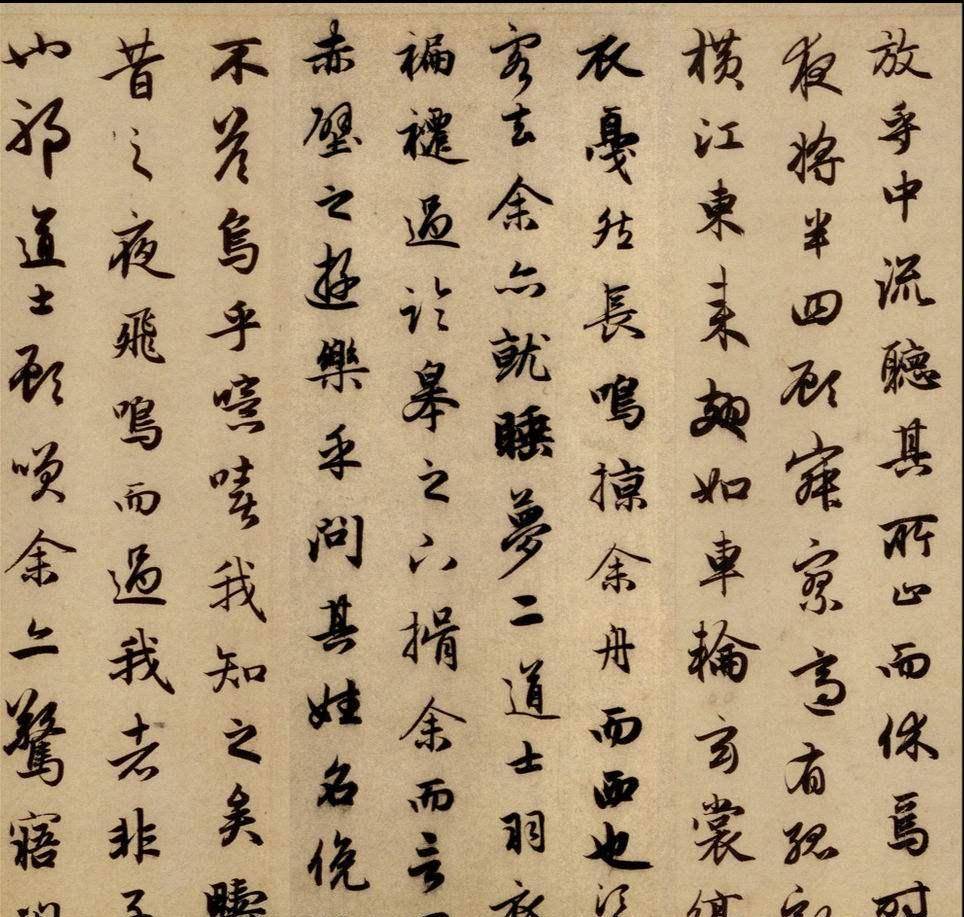 放乎中流聽其所止而休焉時
夜將半四顧寂寥適有孤
橫江東来翅如車輪玄裳縞
衣戛然長鳴掠余舟而西也
客去余亦就睡夢二道士羽衣
褊褼過臨皋之下揖余而言
赤壁之遊樂乎問其姓名俛
不答烏乎噫嘻我知之矣疇
昔之夜飛鳴而過我者非子
也邪道士顧笑余亦驚寤